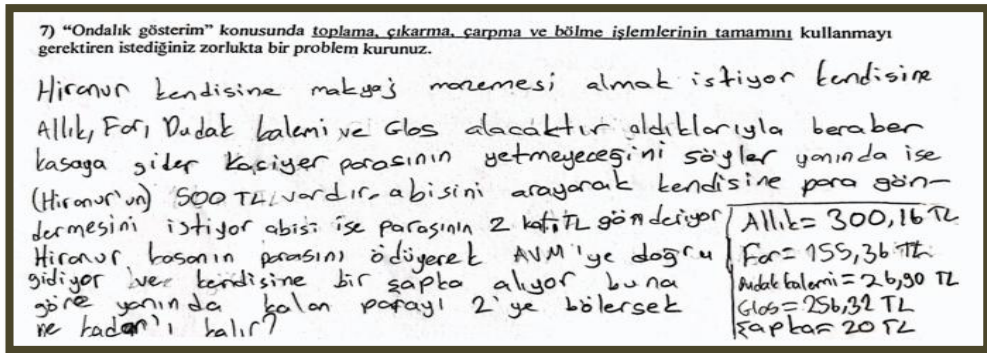 7) “Ondalık gösterim” konusunda toplama, çıkarma, çarpma ve bölme işlemlerinin tamamını kullanmayı
gerektiren istediğiniz zorlukta bir problem kurunuz.
Hiranur kendisine makyaj mazemesi almak istiyor kendisine
Allık, Far, Dudak kalemi ve Glos alacaktır aldıklarıyla beraber
kasaya gider kasiyer parasının yetmeyeceğini söyler yanında ise
(Hiranur'un) 500 TL vardır. abisini arayarak kendisine para gön-
dermesini istiyor abisi ise parasının 2 katı TL gönderiyor
Hiranur kasanın parasını ödüyerek AVM'ye doğru
gidiyor ve kendisine bir şapka alıyor buna
göre yanında kalan parayı 2'ye bölersek
ne kadar'ı kalır?
Allık= 300,16 TL
Far= 155,36 TL
Dudak kalemi= 26,90 TL
Glos= 256,32 TL
Şapka= 20 TL